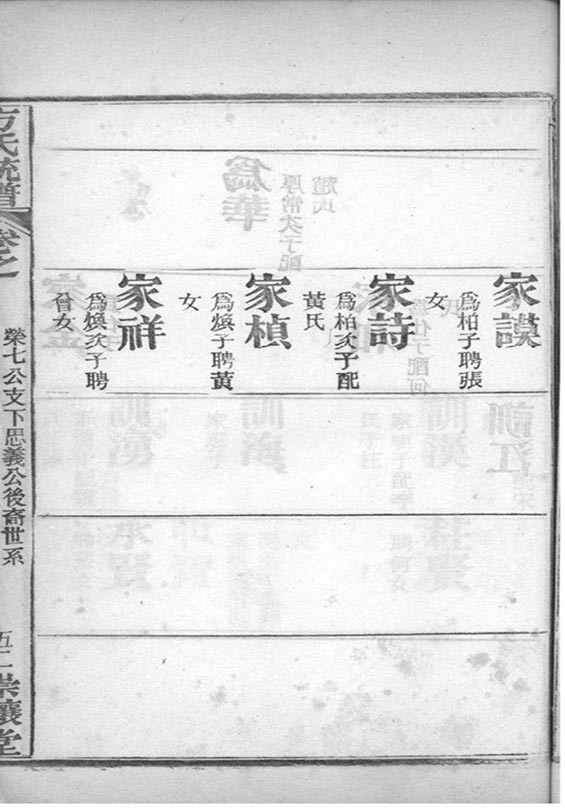 家謨
為柏子聘張
女
家詩
為柏次子配
黃氏
家楨
為煥子聘黃
女
家祥
為煥次子聘
曾女
方氏統譜
卷之
榮七公支下思義公後裔世系
五二
崇讓堂